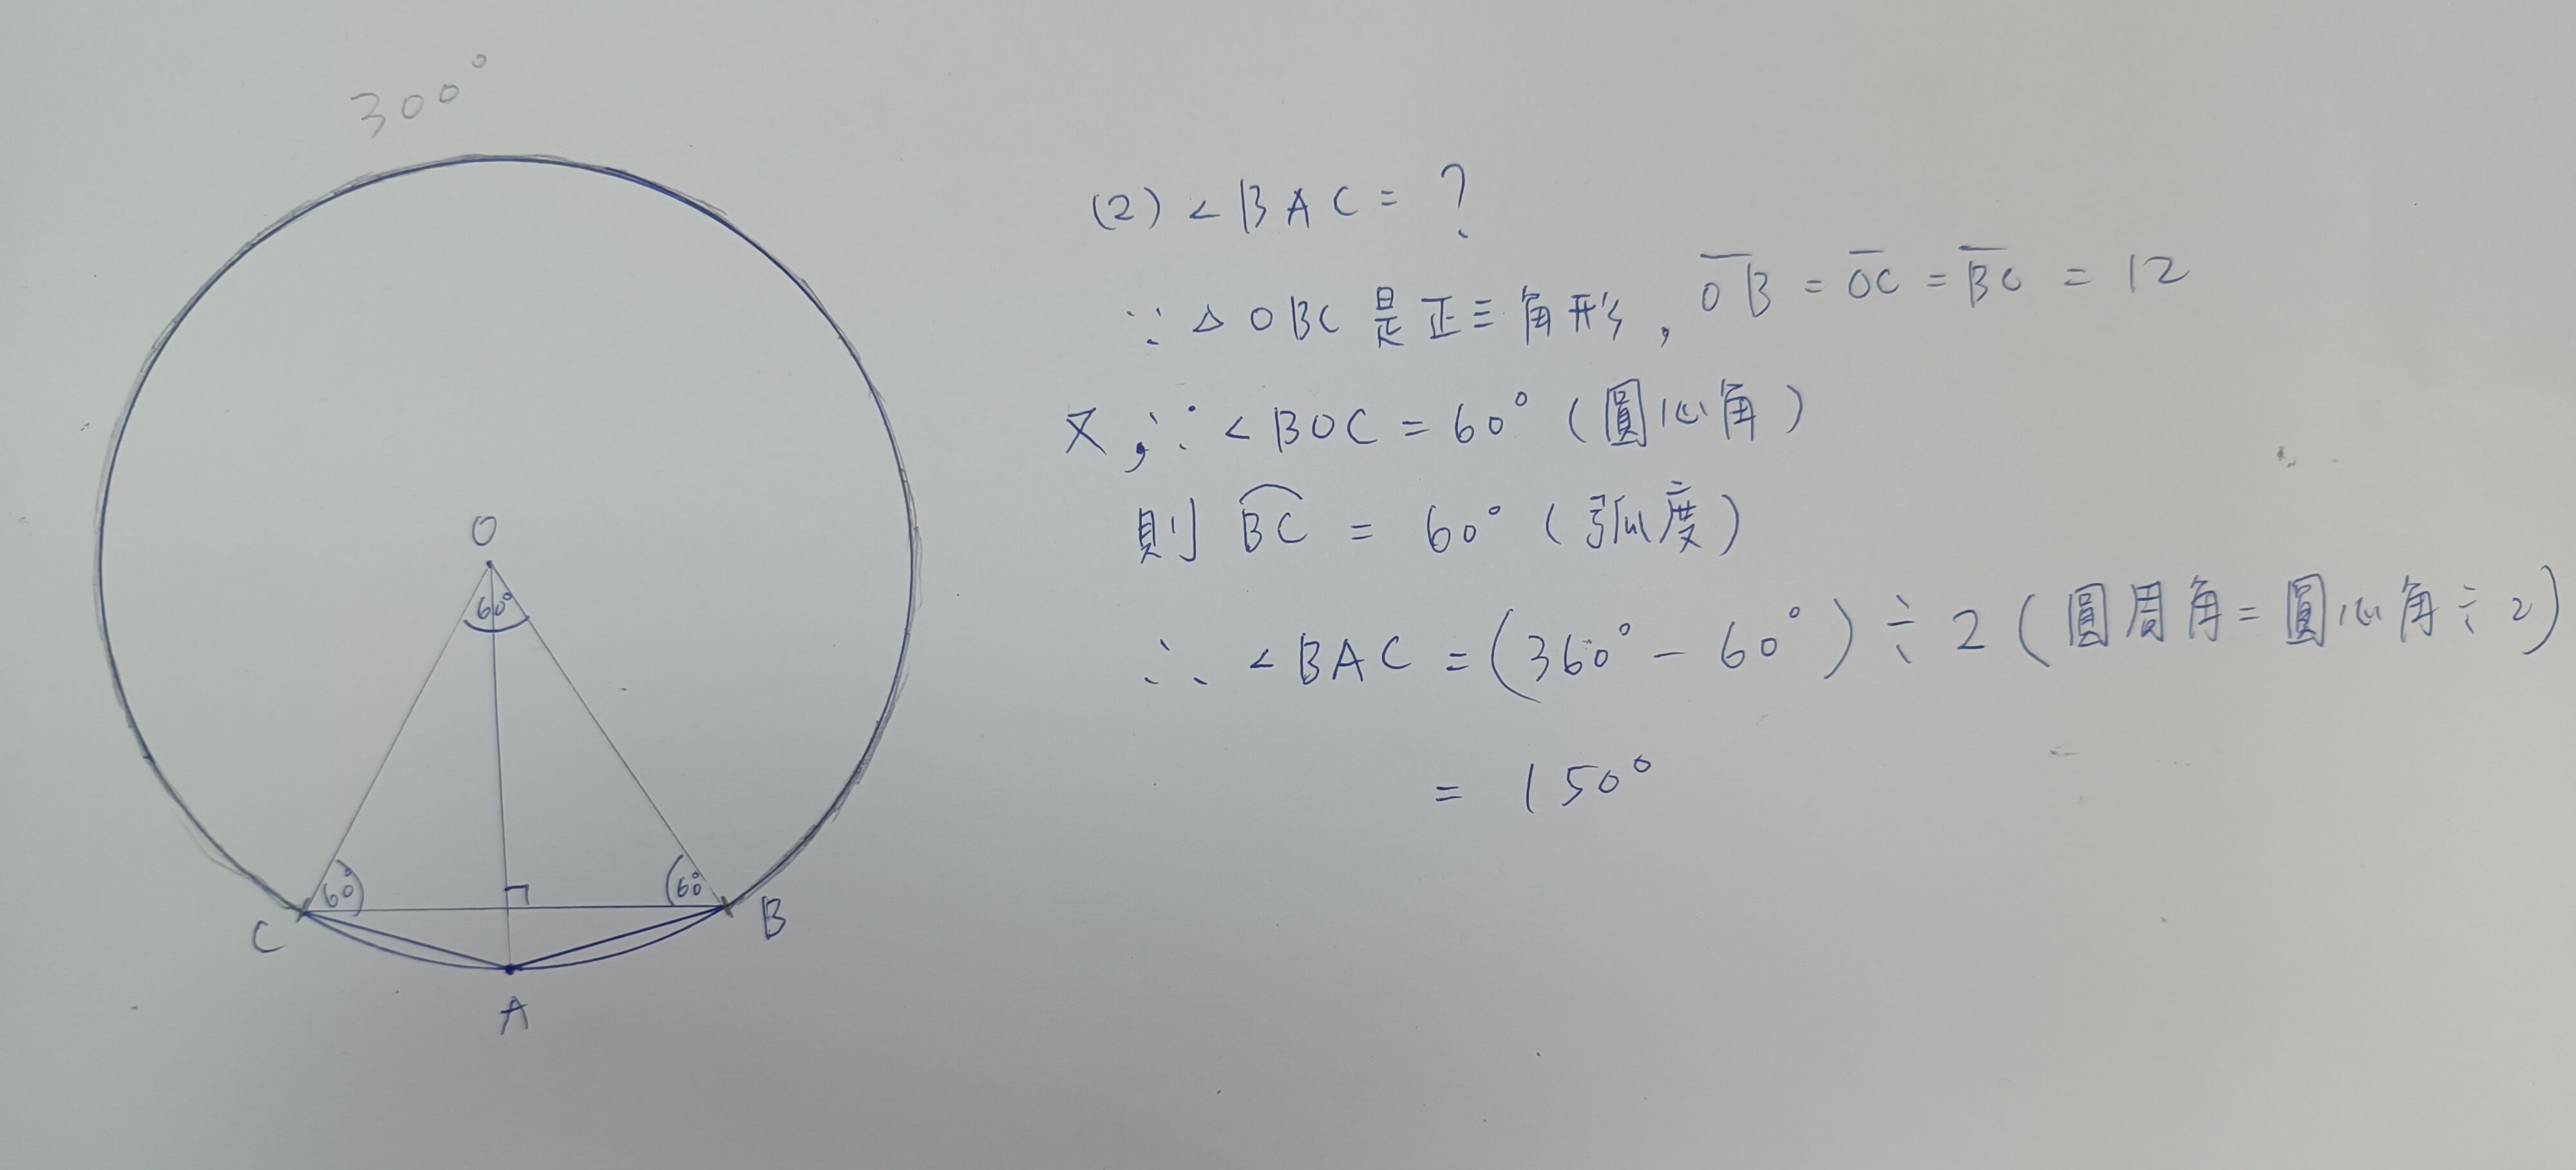 300°
O
60°
60°
60°
C
B
A
(2) ∠BAC = ?
∵ △OBC 是正三角形, O̅B̅ = O̅C̅ = B̅C̅ = 12
又, ∵ ∠BOC = 60° (圓心角)
則 B͡C = 60° (弧度)
∴ ∠BAC = (360° - 60°) ÷ 2 (圓周角 = 圓心角 ÷ 2)
= 150°